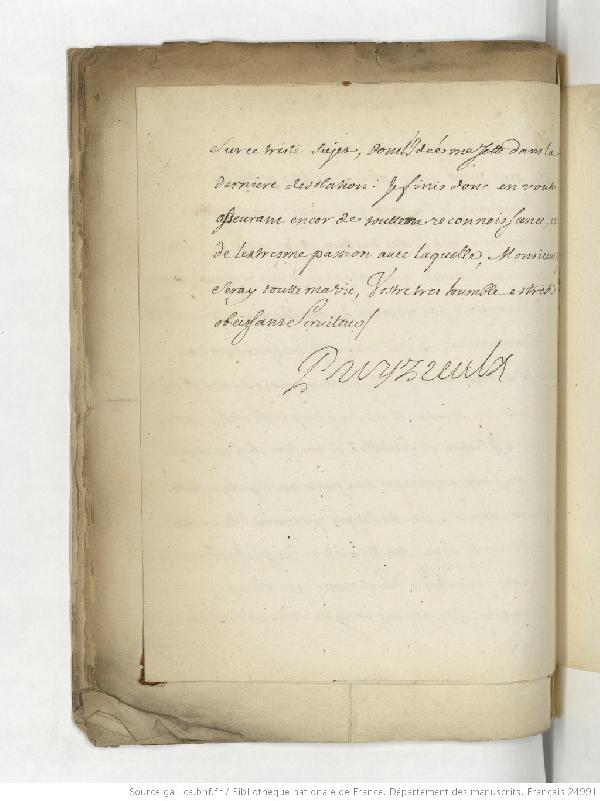 sur ce triste sujet, dont l'idée me jette dans la
derniere desolation: Je finis donc en vous
asseurant encor de toutte ma reconnoissance, et
de l'extresme passion avec laquelle, Monsieur,
seray toutte ma vie, Vostre tres humble e tres
obeissant Serviteur
Puyzieulx
Source gallica.bnf.fr / Bibliothèque nationale de France. Département des manuscrits. Français 24991